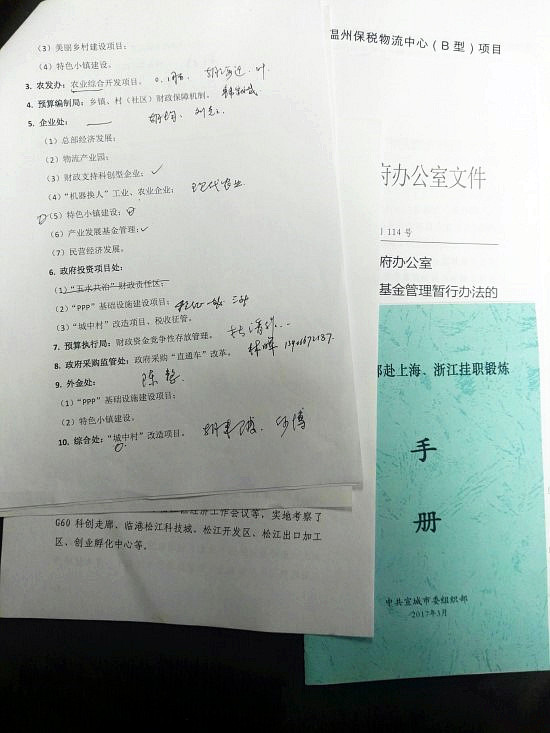 （3）美丽乡村建设项目；
（4）特色小镇建设。
3. 农发办：农业综合开发项目。
4. 预算编制局：乡镇、村（社区）财政保障机制。
5. 企业处：
（1）总部经济发展；
（2）物流产业园；
（3）财政支持科创型企业；
（4）“机器换人”工业、农业企业； 现代农业
（5）特色小镇建设；
（6）产业发展基金管理；
（7）民营经济发展。
6. 政府投资项目处：
（1）“五水共治”财政责任区；
（2）“PPP”基础设施建设项目；
（3）“城中村”改造项目、税收征管。
7. 预算执行局：财政资金竞争性存放管理。
8. 政府采购监管处：政府采购“直通车”改革。
9. 外金处：
（1）“PPP”基础设施建设项目；
（2）特色小镇建设。
10. 综合处：“城中村”改造项目。
经济工作会议等，实地考察了
G60 科创走廊、临港松江科技城、松江开发区、松江出口加工
区、创业孵化中心等。
温州保税物流中心（B 型）项目
府办公室文件
114 号
府办公室
基金管理暂行办法的
部赴上海、浙江挂职锻炼
手
册
中共宣城市委组织部
2017年3月